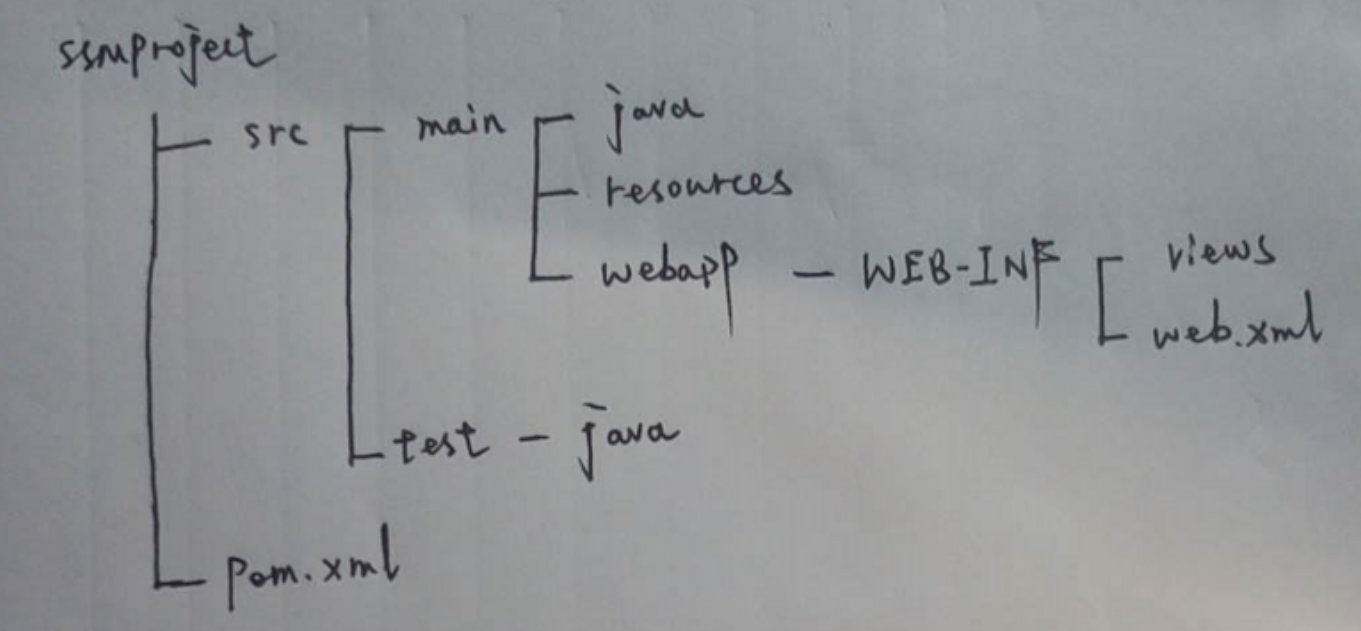 ssmproject
src main java
resources
webapp - WEB-INF views
web.xml
test - java
pom.xml